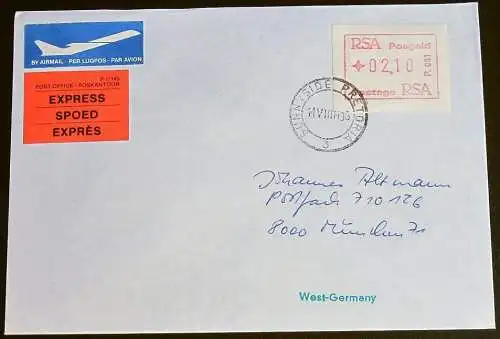 BY AIRMAIL · PER LUGPOS · PAR AVION
P 1/145
POST OFFICE · POSKANTOOR
EXPRESS
SPOED
EXPRÈS
RSA Posgeld
02,10
P.001
Postage RSA
SUNNYSIDE PRETORIA
3
Johannes Altmann
Postfach 710 126
8000 München 71
West-Germany